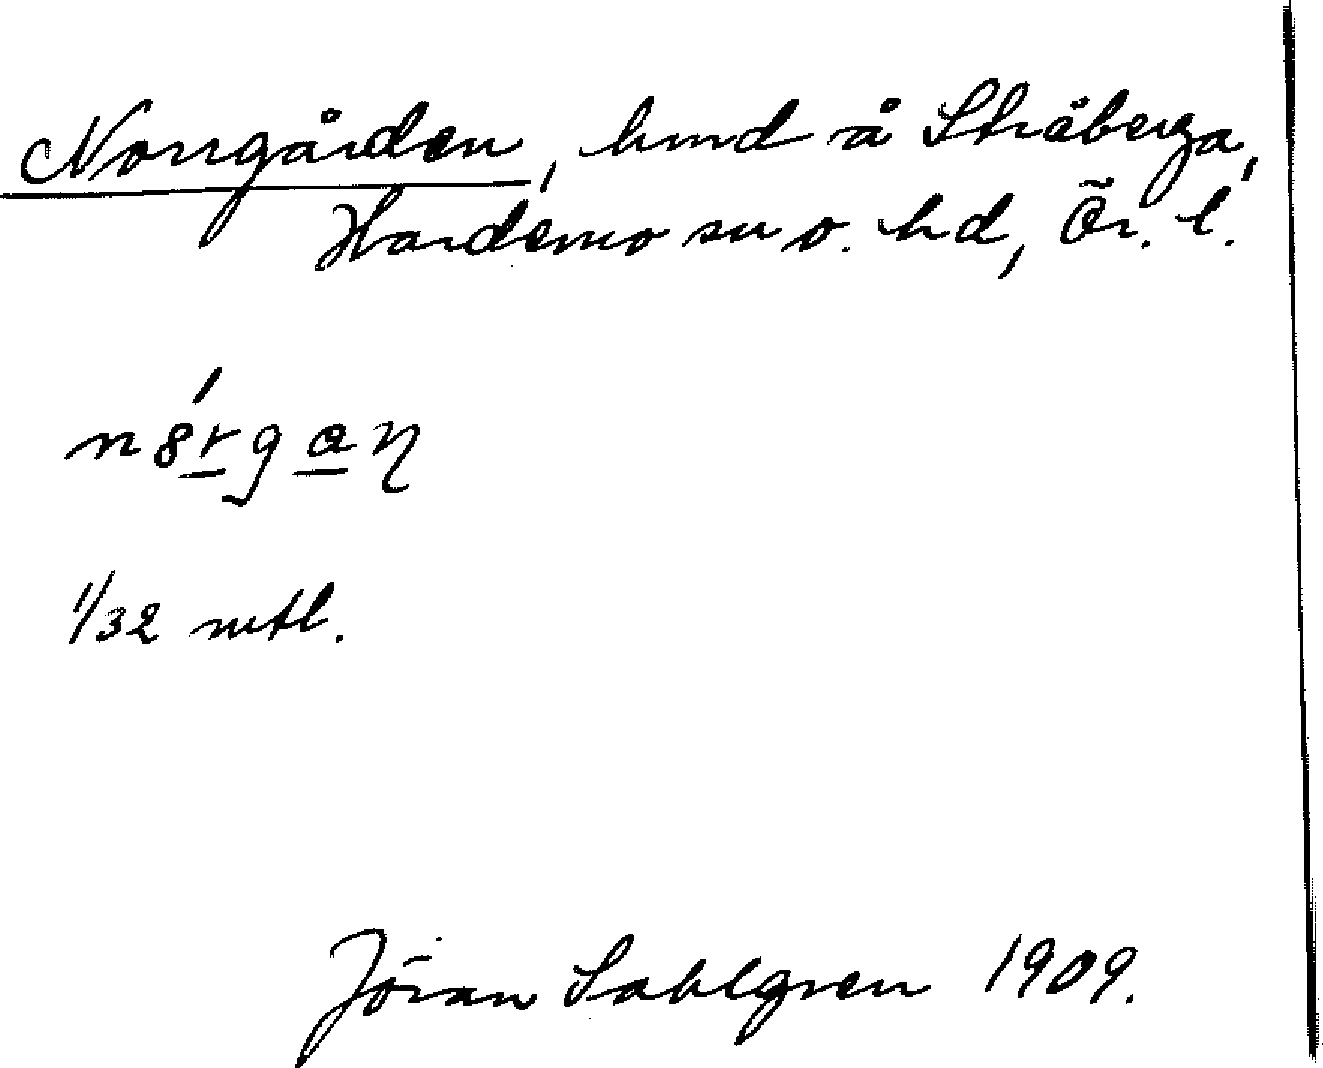 Norrgården, hmd å Stråberga,
Hardemo sn o. hd, Ör. l.
n8́rgaŋ
1/32 mtl.
Jöran Sahlgren 1909.